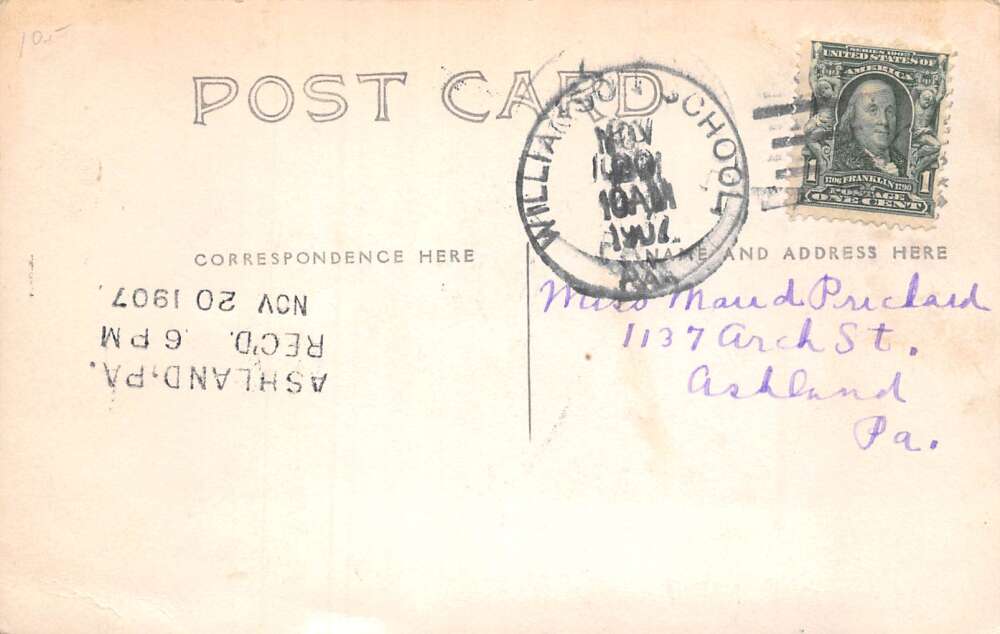 10.-
POST CARD
SERIES 1902
UNITED STATES OF
AMERICA
1706 FRANKLIN 1790
POSTAGE
1 1
ONE CENT
WILLIAMSON SCHOOL
NOV
10AM
1907
PA.
CORRESPONDENCE HERE
NAME AND ADDRESS HERE
Miss Maud Prichard
1137 Arch St.
Ashland
Pa.
ASHLAND, PA.
REC'D. 6 PM
NOV 20 1907